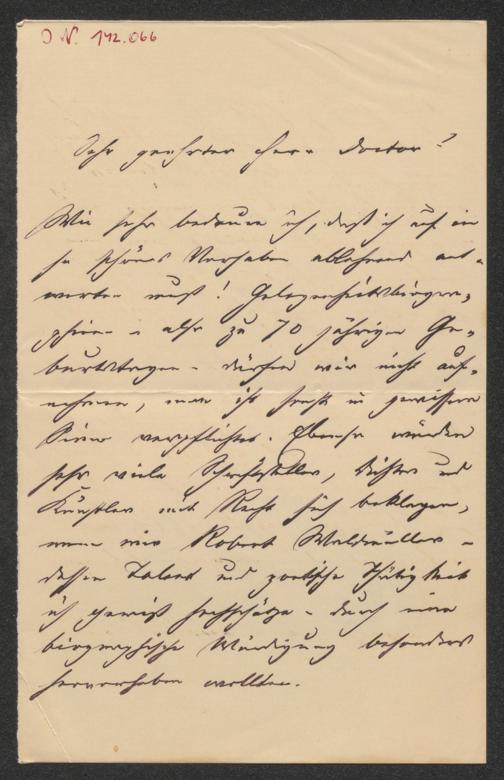 I N. 142.066
Sehr geehrter Herr Doctor!
Wie sehr bedaure ich, daß ich auf ein
so schönes Vorhaben ablehnend ant-
worten muß! Gelegenheitsbiogra-
phien - also zu 70 jährigen Ge-
burtstagen - dürfen wir nicht auf-
nehmen, man ist sonst in gewissem
Sinne verpflichtet. Ebenso würden
sehr viele Schriftsteller, Dichter und
Künstler mit Recht sich beklagen,
wenn wir Robert Waldmüller -
dessen Talent und poetische Thätigkeit
ich gewiß hochschätze - durch eine
biographische Würdigung besonders
hervorheben wollten.